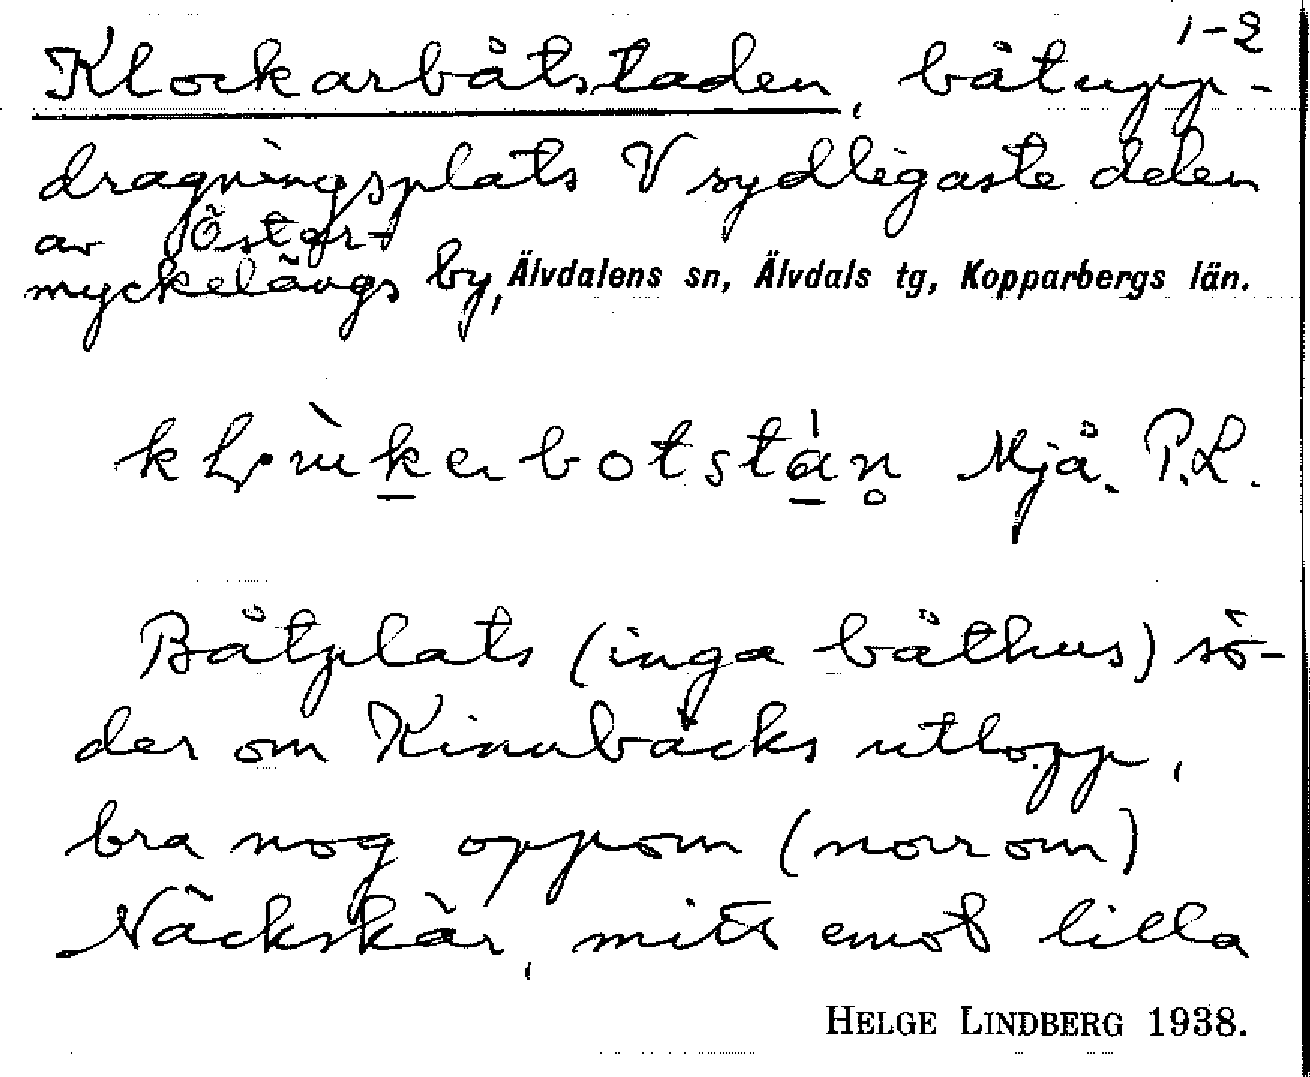 1-2
Klockarbåtstaden, båtupp-
dragningsplats V sydligaste delen
av Öster-
myckelängs by, Älvdalens sn, Älvdals tg, Kopparbergs län.
Mjå. P.L.
Båtplats (inga båthus) sö-
der om Kinubäcks utlopp,
bra nog oppom (norrom)
Näckskär, mitt emot lilla
HELGE LINDBERG 1938.